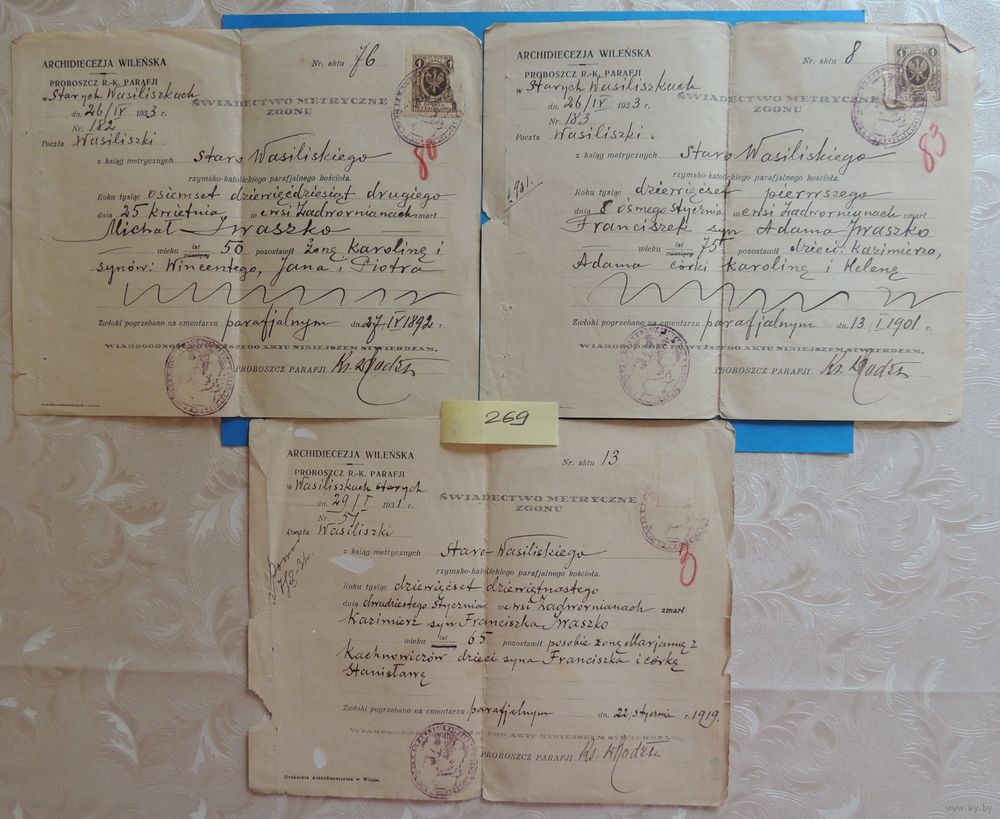 ARCHIDIECEZJA WILEŃSKA
PROBOSZCZ R.-K. PARAFJI
w Starych Wasiliszkach
dn. 26/IV 1933 r.
Nr. 182
Poczta Wasiliszki
Nr. aktu 76
ŚWIADECTWO METRYCZNE
ZGONU
80
z ksiąg metrycznych Staro Wasiliskiego
rzymsko-katolickiego parafjalnego kościoła.
Roku tysiąc osiemset dziewięćdziesiąt drugiego
dnia 25 kwietnia, w ewsi Zadwornianach zmarł
Michał Iwaszko
wieku lat miesięcy 50 pozostawił żonę Karolinę i
synów: Wincentego, Jana i Piotra
Zwłoki pogrzebano na cmentarzu parafjalnym dn. 27/IV 1892 r.
WIAROGODNOŚĆ POWYŻSZEGO AKTU NINIEJSZEM STWIERDZAM.
PROBOSZCZ PARAFJI Ks.
ARCHIDIECEZJA WILEŃSKA
PROBOSZCZ R.-K. PARAFJI
w Starych Wasiliszkach
dn. 26/IV 1933 r.
Nr. 183
Poczta Wasiliszki
Nr. aktu 8
1 1
ŚWIADECTWO METRYCZNE
ZGONU
83
1901.
z ksiąg metrycznych Staro Wasiliskiego
rzymsko-katolickiego parafjalnego kościoła.
Roku tysiąc dziewięćset pierwszego
dnia 8 ósmego stycznia w ewsi Zadwornianach zmarł
Franciszek syn Adama Iwaszko
wieku lat miesięcy 75 pozostawił dzieci: Kazimierza,
Adama córki Karolinę i Helenę
Zwłoki pogrzebano na cmentarzu parafjalnym dn. 13/I 1901 r.
WIAROGODNOŚĆ POWYŻSZEGO AKTU NINIEJSZEM STWIERDZAM.
PROBOSZCZ PARAFJI Ks.
269
ARCHIDIECEZJA WILEŃSKA
PROBOSZCZ R.-K. PARAFJI
w Wasiliszkach Starych
dn. 29/I 1931 r.
Nr. 51
Poczta Wasiliszki
Nr. aktu 13
ŚWIADECTWO METRYCZNE
ZGONU
3
z ksiąg metrycznych Staro-Wasiliskiego
rzymsko-katolickiego parafjalnego kościoła.
Roku tysiąc dziewięćset dziewiętnastego
dnia dwudziestego stycznia w ewsi Zadwornianach zmarł
Kazimierz syn Franciszka Iwaszko
wieku lat miesięcy 65 pozostawił posobie żonę Marjannę z
Kachnowiczów dzieci syna Franciszka i córkę
Stanisławę
Zwłoki pogrzebano na cmentarzu parafjalnym dn. 22 stycznia r. 1919.
WIAROGODNOŚĆ POWYŻSZEGO AKTU NINIEJSZEM STWIERDZAM.
PROBOSZCZ PARAFJI Ks.
Drukarnia Archidiecezjalna w Wilnie.
www.ay.by